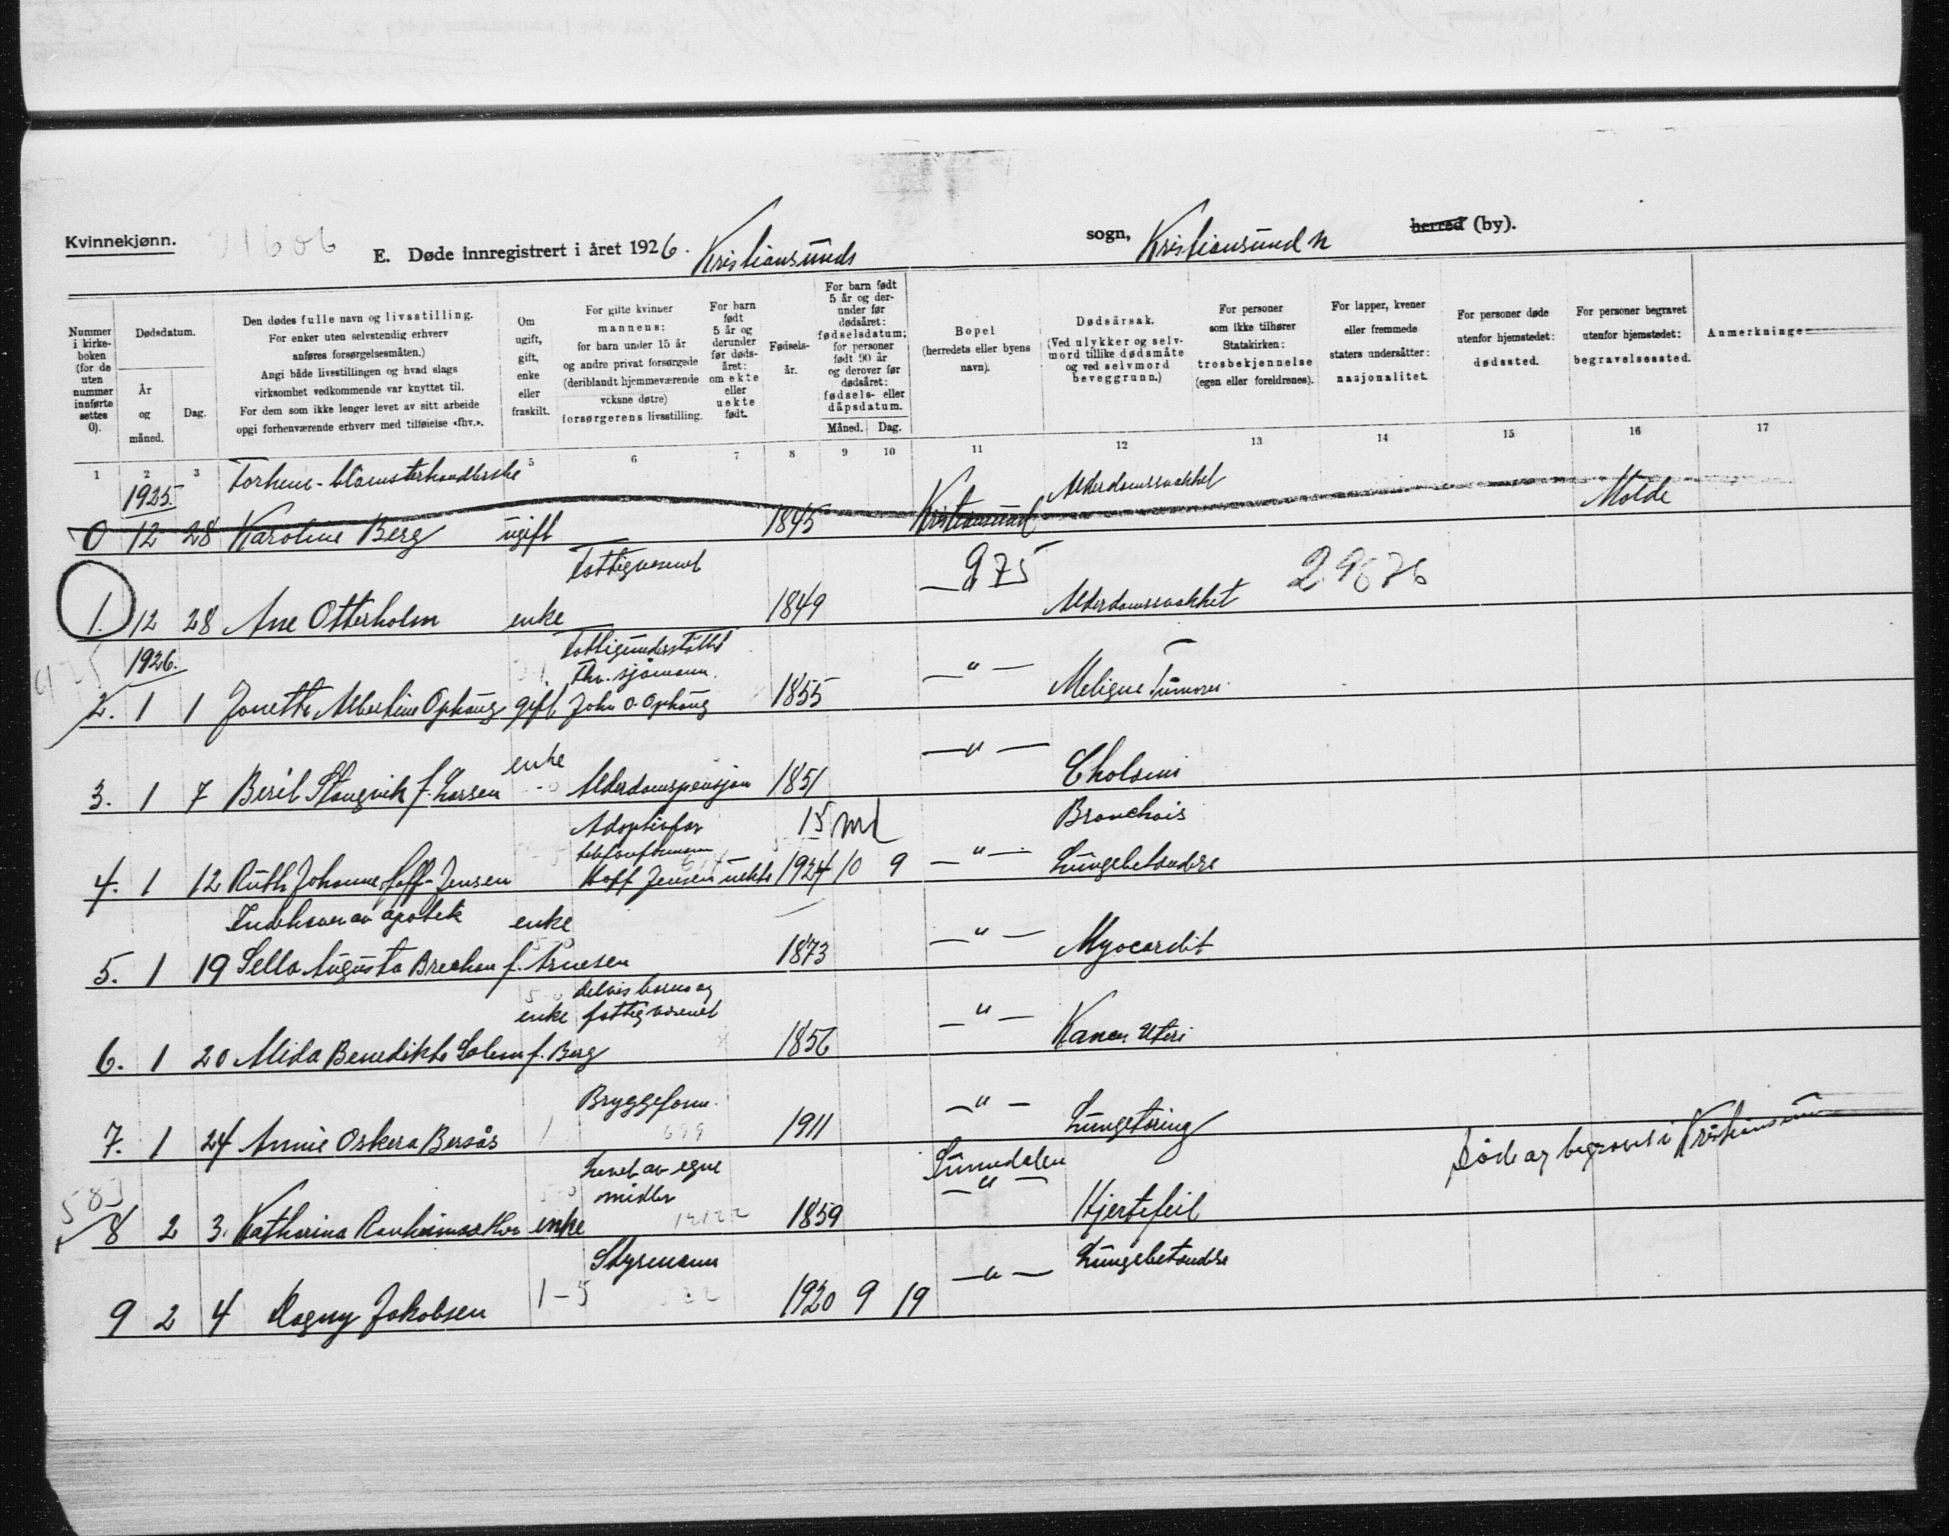 Kvinnekjønn.
E. Døde innregistrert i året 1926. Kristiansunds sogn, Kristiansund N herred (by).
Nummer i kirkeboken (for de uten nummer innførte settes 0).
Dødsdatum.
År og måned.
Dag.
Den dødes fulle navn og livsstilling.
For enker uten selvstendig erhverv
anføres forsørgelsesmåten.)
Angi både livsstillingen og hvad slags
virksomhet vedkommende var knyttet til.
For dem som ikke lenger levet av sitt arbeide
opgi forhenværende erhverv med tilføielse «fhv.».
Om ugift, gift, enke eller fraskilt.
For gifte kvinner
mannens:
for barn under 15 år
og andre privat forsørgede
(deriblandt hjemmeværende
voksne døtre)
forsørgerens livsstilling.
For barn født 5 år og derunder før dødsåret: om ekte eller uekte født.
Fødselsår.
For barn født 5 år og derunder før dødsåret: fødselsdatum; for personer født 90 år og derover før dødsåret: fødsels- eller dåpsdatum.
Måned. Dag.
Bopel
(herredets eller byens
navn).
Dødsårsak.
(Ved ulykker og selvmord tillike dødsmåte
og ved selvmord
beveggrunn.)
For personer
som ikke tilhører
Statskirken:
trosbekjennelse
(egen eller foreldrenes).
For lapper, kvener
eller fremmede
staters undersåtter:
nasjonalitet.
For personer døde
utenfor hjemstedet:
dødssted.
For personer begravet
utenfor hjemstedet:
begravelsessted.
Anmerkninger
1 2 3 5 6 7 8 9 10 11 12 13 14 15 16 17
1925.
0 12 28 Karoline Berg ugift 1845 Kristiansund Alderdomssvakhet Molde
Fattigvesenet
975 29676
1. 12 28 Ane Otterholm enke 1849 Alderdomssvakhet
1926.
Fattigunderstøttet
Fhv. sjømann.
2. 1 1 Albertine Ophaug gift John O. Ophaug 1855 — " —
3. 1 7 Berit Stangvik f. Larsen enke Alderdomspensjon 1851 — " —
Adoptivfar 15 Md
4. 1 12 Ruth Johanne Hoff-Jensen Hoff Jensen uekte 1924 10 9 — " — Lungebetændelse
Indehaver av apotek enke
5. 1 19 Augusta f. Arnesen 1873 — " — Myocardit
delvis barna og
enke fattigvesenet
6. 1 20 Alida Benedikte Solem f. Berg 1856 — " — Uteri
Bryggeform.
7. 1 24 Annie Oskera 1911 — " — Lungetæring
Levet av egne Død og begravet i Kristiansund
midler
8 2 3. Katharina enke 1859 — " — Hjertefeil
Styrmann Lungebetændelse
9 2 4 Dagny Jakobsen 1–5 1920 9 19 — " —